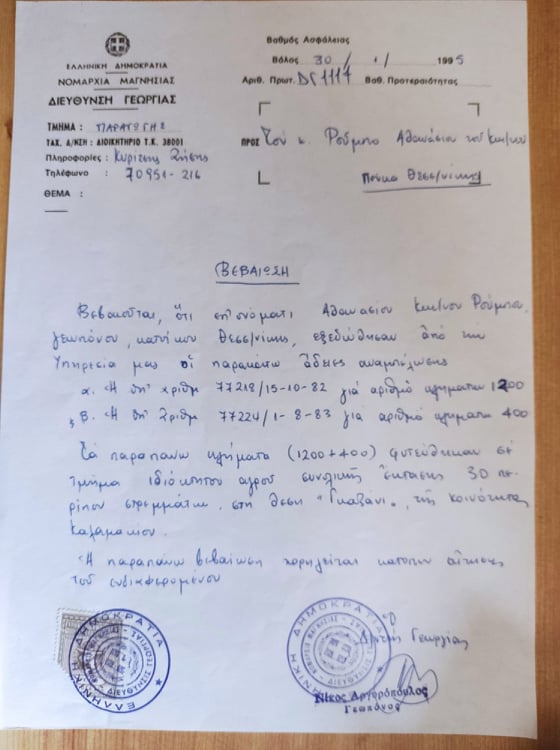 ΕΛΛΗΝΙΚΗ ΔΗΜΟΚΡΑΤΙΑ
ΝΟΜΑΡΧΙΑ ΜΑΓΝΗΣΙΑΣ
ΔΙΕΥΘΥΝΣΗ ΓΕΩΡΓΙΑΣ
ΤΜΗΜΑ : ΠΑΡΑΓΩΓΗΣ
ΤΑΧ. Δ/ΝΣΗ : ΔΙΟΙΚΗΤΗΡΙΟ Τ.Κ. 38001
Πληροφορίες :
Τηλέφωνο : 70951-216
ΘΕΜΑ :
Βαθμός Ασφάλειας
Βόλος 30 / 1 / 1995
Αριθ. Πρωτ. 1117 Βαθ. Προτεραιότητας
ΠΡΟΣ Τον κ. Ρούμπο Αθανάσιο του Κων/νου
Θεσσ/νίκης
ΒΕΒΑΙΩΣΗ
Βεβαιούται, ὅτι ἐπ' ὀνόματι Αθανασίου Κων/νου Ρούμπου,
γεωπόνου, κατοίκου Θεσσ/νίκης, εξεδώθησαν από την
Υπηρεσία μας οἱ παρακάτω ἄδειες αναμπέλωσης
α. Ἡ ὑπ' ἀριθμ 77218/15-10-82 γιά αριθμό κλημάτων 1200
β. Ἡ ὑπ' ἀριθμ 77224/1-8-83 γιά αριθμό κλήματα 400
Τα παραπάνω κλήματα (1200+400) φυτεύθηκαν σε
τμήμα ιδιόκτητου αγρού συνολικής ἔκτασης 30 πε-
ρίπου στρεμμάτων, στη θέση "Γκαζάνι", τῆς κοινότητας
Ἡ παραπάνω βεβαίωση χορηγείται κατόπιν αἴτησης
τοῦ ενδιαφερομένου
ΕΛΛΗΝΙΚΗ ΔΗΜΟΚΡΑΤΙΑ
ΔΙΕΥΘΥΝΣΙΣ ΓΕΩΡΓΙΑΣ
Ο
Δ/ντής Γεωργίας
ΕΛΛΗΝΙΚΗ ΔΗΜΟΚΡΑΤΙΑ
ΔΙΕΥΘΥΝΣΙΣ ΓΕΩΡΓΙΑΣ
Νίκος Αργυρόπουλος
Γεωπόνος